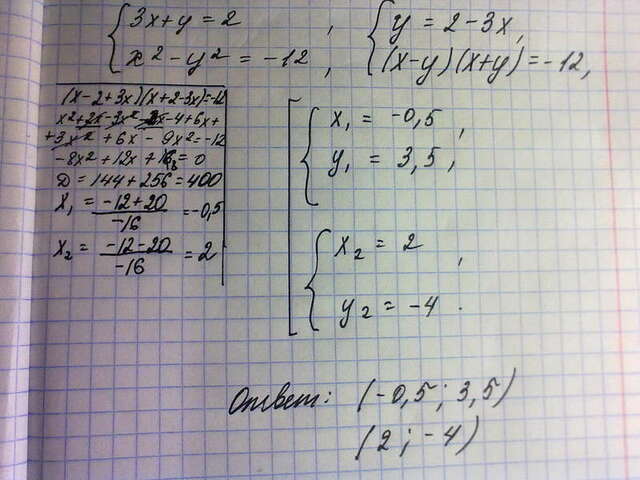 { 3x+y = 2 , { y = 2-3x,
{ x²-y² = -12 , { (x-y)(x+y) = -12,
(x-2+3x)(x+2-3x)=-12
x²+2x-3x²-2x-4+6x+
+3x²+6x-9x²=-12
-8x²+12x+8=0
D=144+256=400
x₁ = (-12+20)/(-16) = -0,5
x₂ = (-12-20)/(-16) = 2
[ { x₁ = -0,5 ,
{ y₁ = 3,5 ,
{ x₂ = 2 ,
{ y₂ = -4 .
Ответ: (-0,5 ; 3,5)
(2 ; -4)